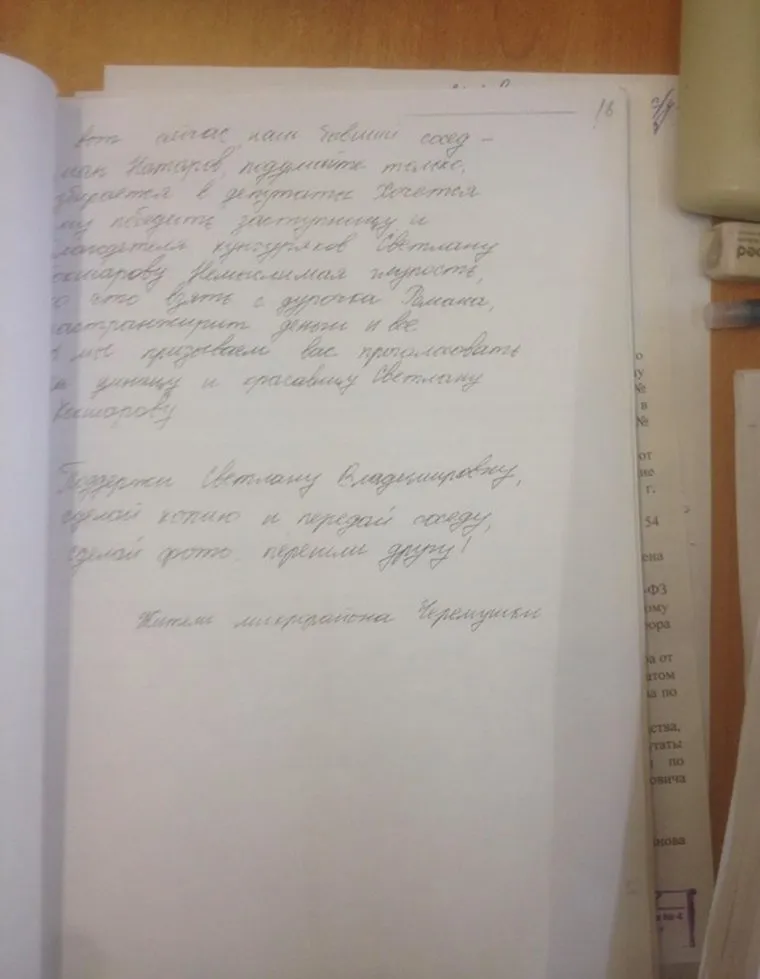 18
Вот сейчас, наш бывший сосед –
ман Натаров, подумайте только,
збирается в депутаты. Хочется
му победить заступницу и
лагодетеля кунгуряков Светлану
Немыслимая глупость,
о что взять с дурочка Романа,
астранжирит деньги и все
мы призываем вас проголосовать
умницу и красавицу Светлану
Поддержи Светлану Владимировну,
сделай копию и передай соседу,
сделай фото перешли другу!
Жители микрорайона Черемушки
о
му
№
в
№
от
ие
г.
54
ена
-ФЗ
ому
ора
а от
атом
а по
ства,
утаты
по
овича
нова